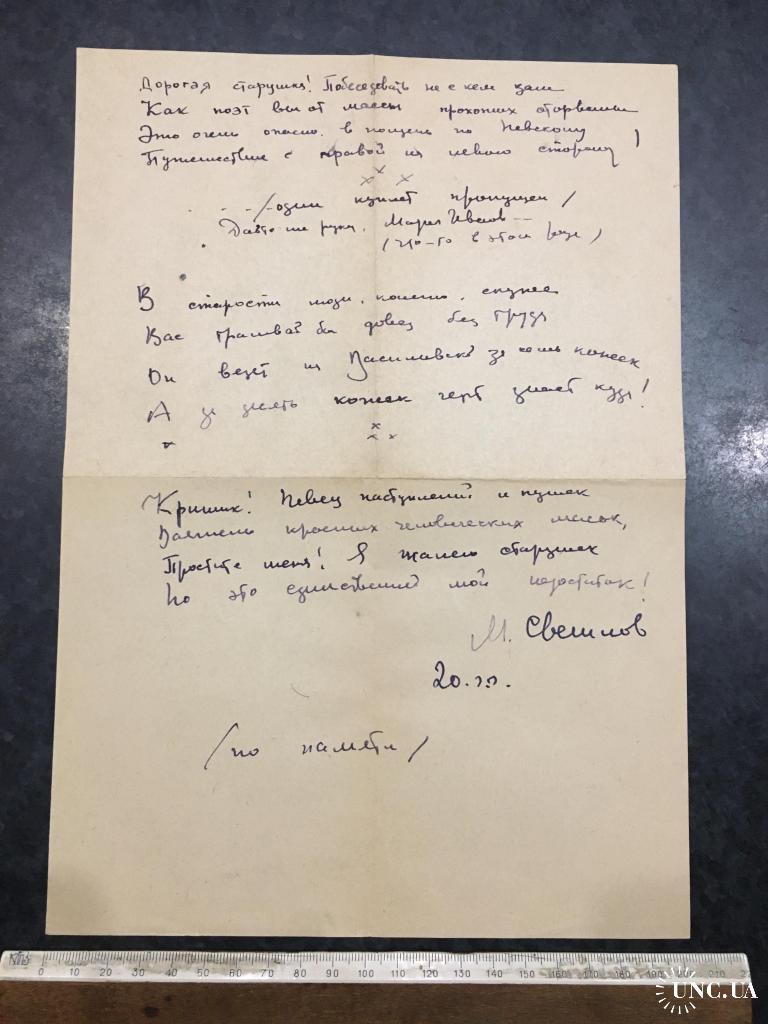 Дорогая старушка! Побеседовать не с кем вам
Как поэт вы от массы прохожих оторваны
Это очень опасно в полдень по Невскому
Путешествие с правой на левую сторону!
х х х
/один куплет пропущен/
Дайте же руку, Мария Иванов--
(что-то в этом роде)
В старости люди, конечно, скупее
Вас трамвай бы довез без труда
Он везет на Васильевский за семь копеек
А за десять копеек черт знает куда!
х х х
Критик! Певец наступлений и пушек
Ваятель красных человеческих масок,
Простите меня! Я жалею старушек
Но это единственный мой недостаток!
М. Светлов
20-х гг.
/по памяти/
0 10 20 30 40 50 60 70 80 90 100 110 120 130 140 150 160 170 180 190 210
UNC.UA